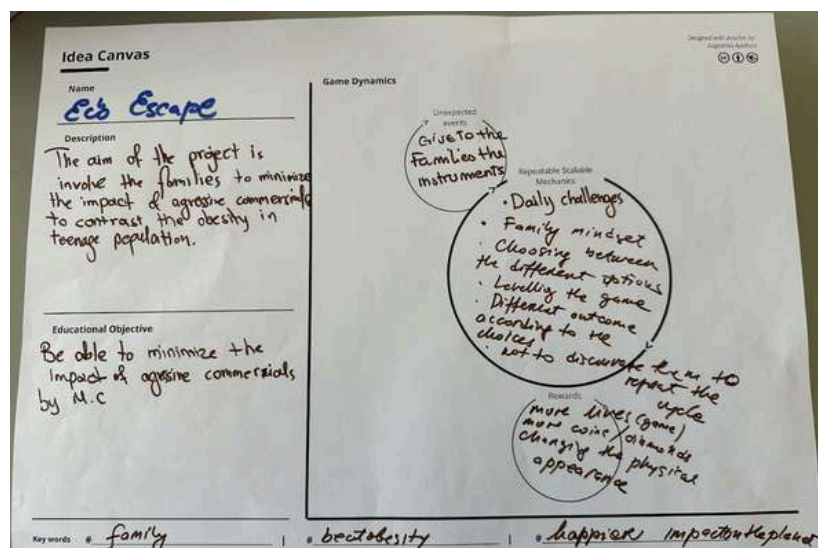 Idea Canvas
Designed with
Name
Eco Escape
Description
The aim of the project is
involve the families to minimize
the impact of agressive commercials
to contrast the obesity in
teenage population.
Educational Objective
Be able to minimize the
impact of agressive commercials
by M.C
Game Dynamics
Unexpected
events
Give to the
Families the
instruments
Repeatable Scalable
Mechanics
• Daily challenges
• Family mindset
• Choosing between
the different options
• Levellig the game
• Different outcome
according to the
choices
• not to discourate them to
repeat the
cycle
Rewards
more lives (game)
more coins / diamonds
changing the physical
appearance
Key words # family
# beatobesity
# happier impactontheplanet